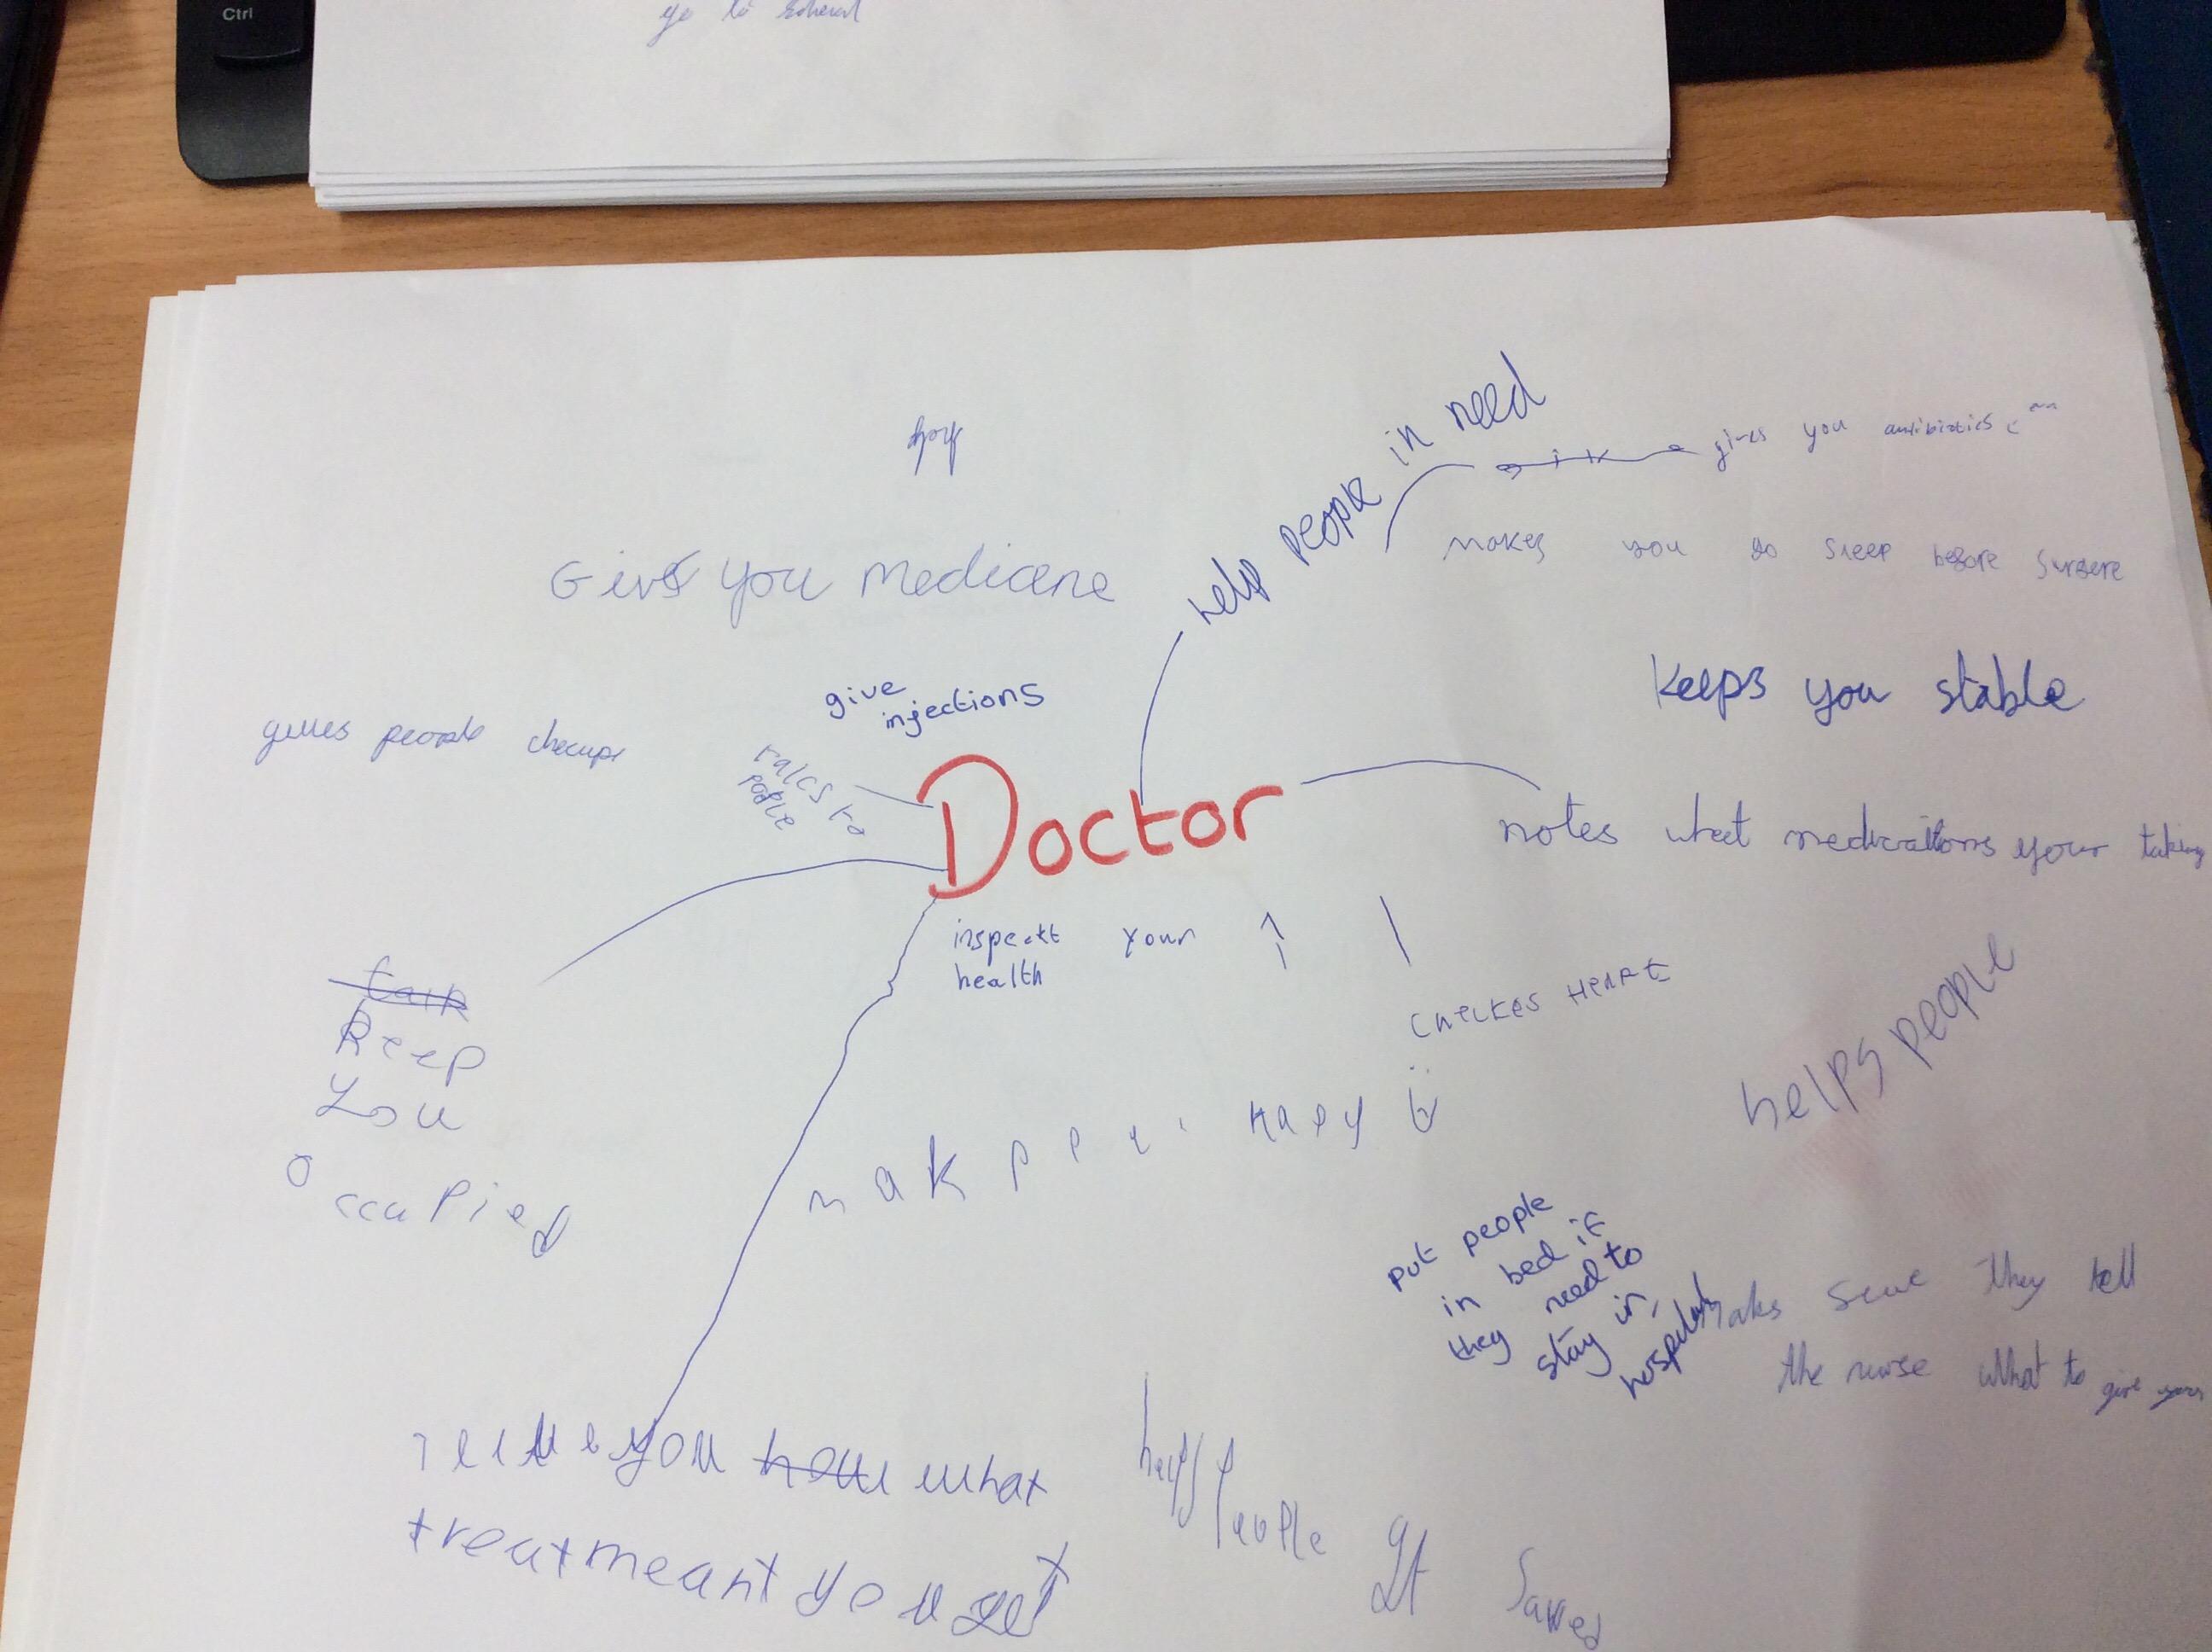 Ctrl
go to
help
help people in need
gives you antibiotics
Gives you medicene
makes you go sleep before surgere
give
injections
Keeps you stable
gives people checups
talcs to
Doctor
notes what medications your taking
inspectt your
health
Keep
You
Occupied
checkes heart
helps people
mak
put people
in bed if
they need to
stay in
hospital
maks sure they tell
the nurse what to give you
you how what
treatmeant you get
helps people